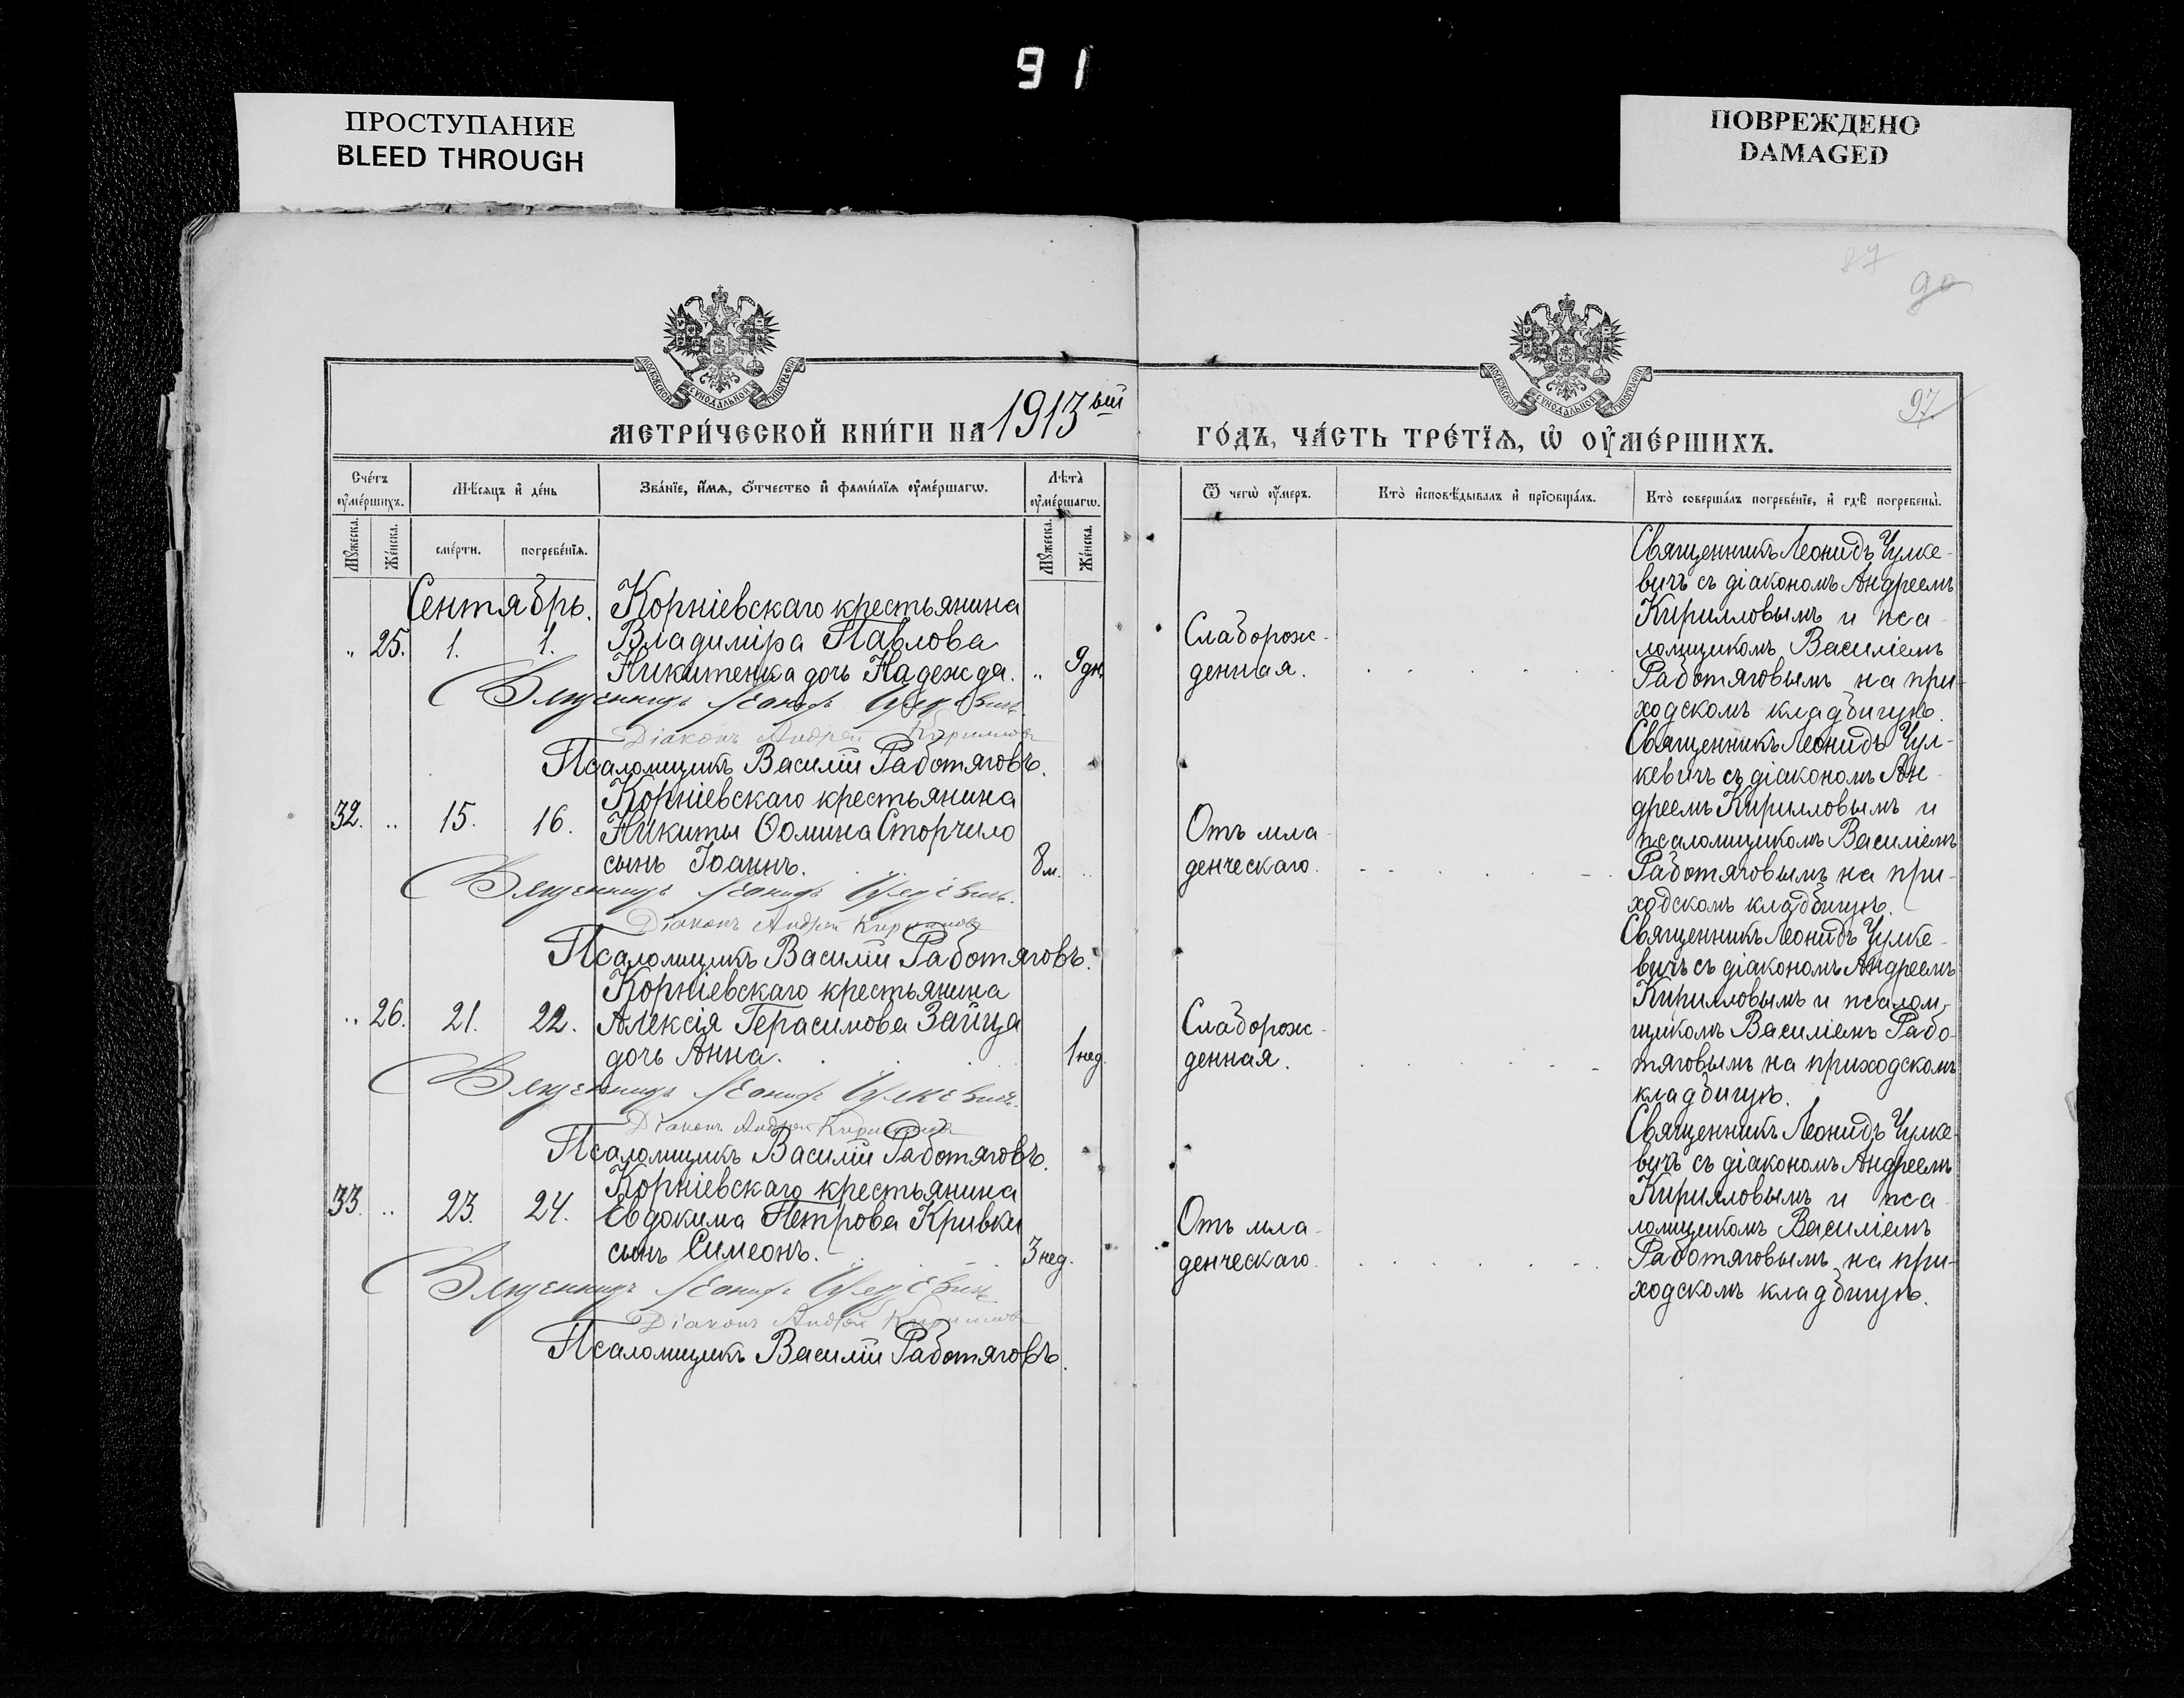 91
ПРОСТУПАНИЕ
BLEED THROUGH
ПОВРЕЖДЕНО
DAMAGED
97
МОСКОВСКОЙ СѴНОДАЛЬНОЙ ТИПОГРАФІИ
МОСКОВСКОЙ СѴНОДАЛЬНОЙ ТИПОГРАФІИ
МЕТРИ́ЧЕСКОЙ КНИ́ГИ НА 1913ый
ГО́ДЪ, ЧА́СТЬ ТРЕ́ТЇѦ, Ѡ҆ ОУ҆МЕ́РШИХЪ.
Сче́тъ оу҆ме́ршихъ.
Мѣ́сѧцъ и҆ де́нь
Зва́нїе, и҆́мѧ, ѻ҆́тчество и҆ фами́лїѧ оу҆ме́ршагѡ.
Лѣ̀та оу҆ме́ршагѡ.
Ѿ чегѡ̀ оу҆́меръ.
Кто̀ и҆сповѣ́дывалъ и҆ прїѡбща́лъ.
Кто̀ соверша́лъ погребе́нїе, и҆ гдѣ̀ погребены̀.
Мꙋ́жеска.
Же́нска.
сме́рти.
погребе́нїѧ.
Мꙋ́жеска.
Же́нска.
Сентябрь.
Корніевскаго крестьянина
" 25. 1. 1. Владиміра Павлова
Никитенка дочь Надежда. " 9 дн.
Священникъ Леонидъ Чулкевичъ.
Діаконъ Андрей Кирилловъ
Псаломщикъ Василій Работяговъ.
Слаборож-
денная.
Священникъ Леонидъ Чулке-
вичъ съ діакономъ Андреемъ
Кирилловымъ и пса-
ломщикомъ Василіемъ
Работяговымъ на при-
ходскомъ кладбищѣ.
Корніевскаго крестьянина
32. " 15. 16. Никиты Ѳомина Сторчило
сынъ Іоаннъ. 8 м. "
Священникъ Леонидъ Чулкевичъ.
Діаконъ Андрей Кирилловъ
Псаломщикъ Василій Работяговъ.
Отъ мла-
денческаго.
Священникъ Леонидъ Чул-
кевичъ съ діакономъ Ан-
дреемъ Кирилловымъ и
псаломщикомъ Василіемъ
Работяговымъ на при-
ходскомъ кладбищѣ.
Корніевскаго крестьянина
" 26. 21. 22. Алексія Герасимова Зайца
дочь Анна. 1 нед.
Священникъ Леонидъ Чулкевичъ.
Діаконъ Андрей Кирилловъ
Псаломщикъ Василій Работяговъ.
Слаборож-
денная.
Священникъ Леонидъ Чулке-
вичъ съ діакономъ Андреемъ
Кирилловымъ и псалом-
щикомъ Василіемъ Рабо-
тяговымъ на приходскомъ
кладбищѣ.
Корніевскаго крестьянина
33. " 23. 24. Евдокима Петрова Кривки
сынъ Симеонъ. 3 нед.
Священникъ Леонидъ Чулкевичъ
Діаконъ Андрей Кирилловъ
Псаломщикъ Василій Работяговъ.
Отъ мла-
денческаго.
Священникъ Леонидъ Чулке-
вичъ съ діакономъ Андреемъ
Кирилловымъ и пса-
ломщикомъ Василіемъ
Работяговымъ на при-
ходскомъ кладбищѣ.